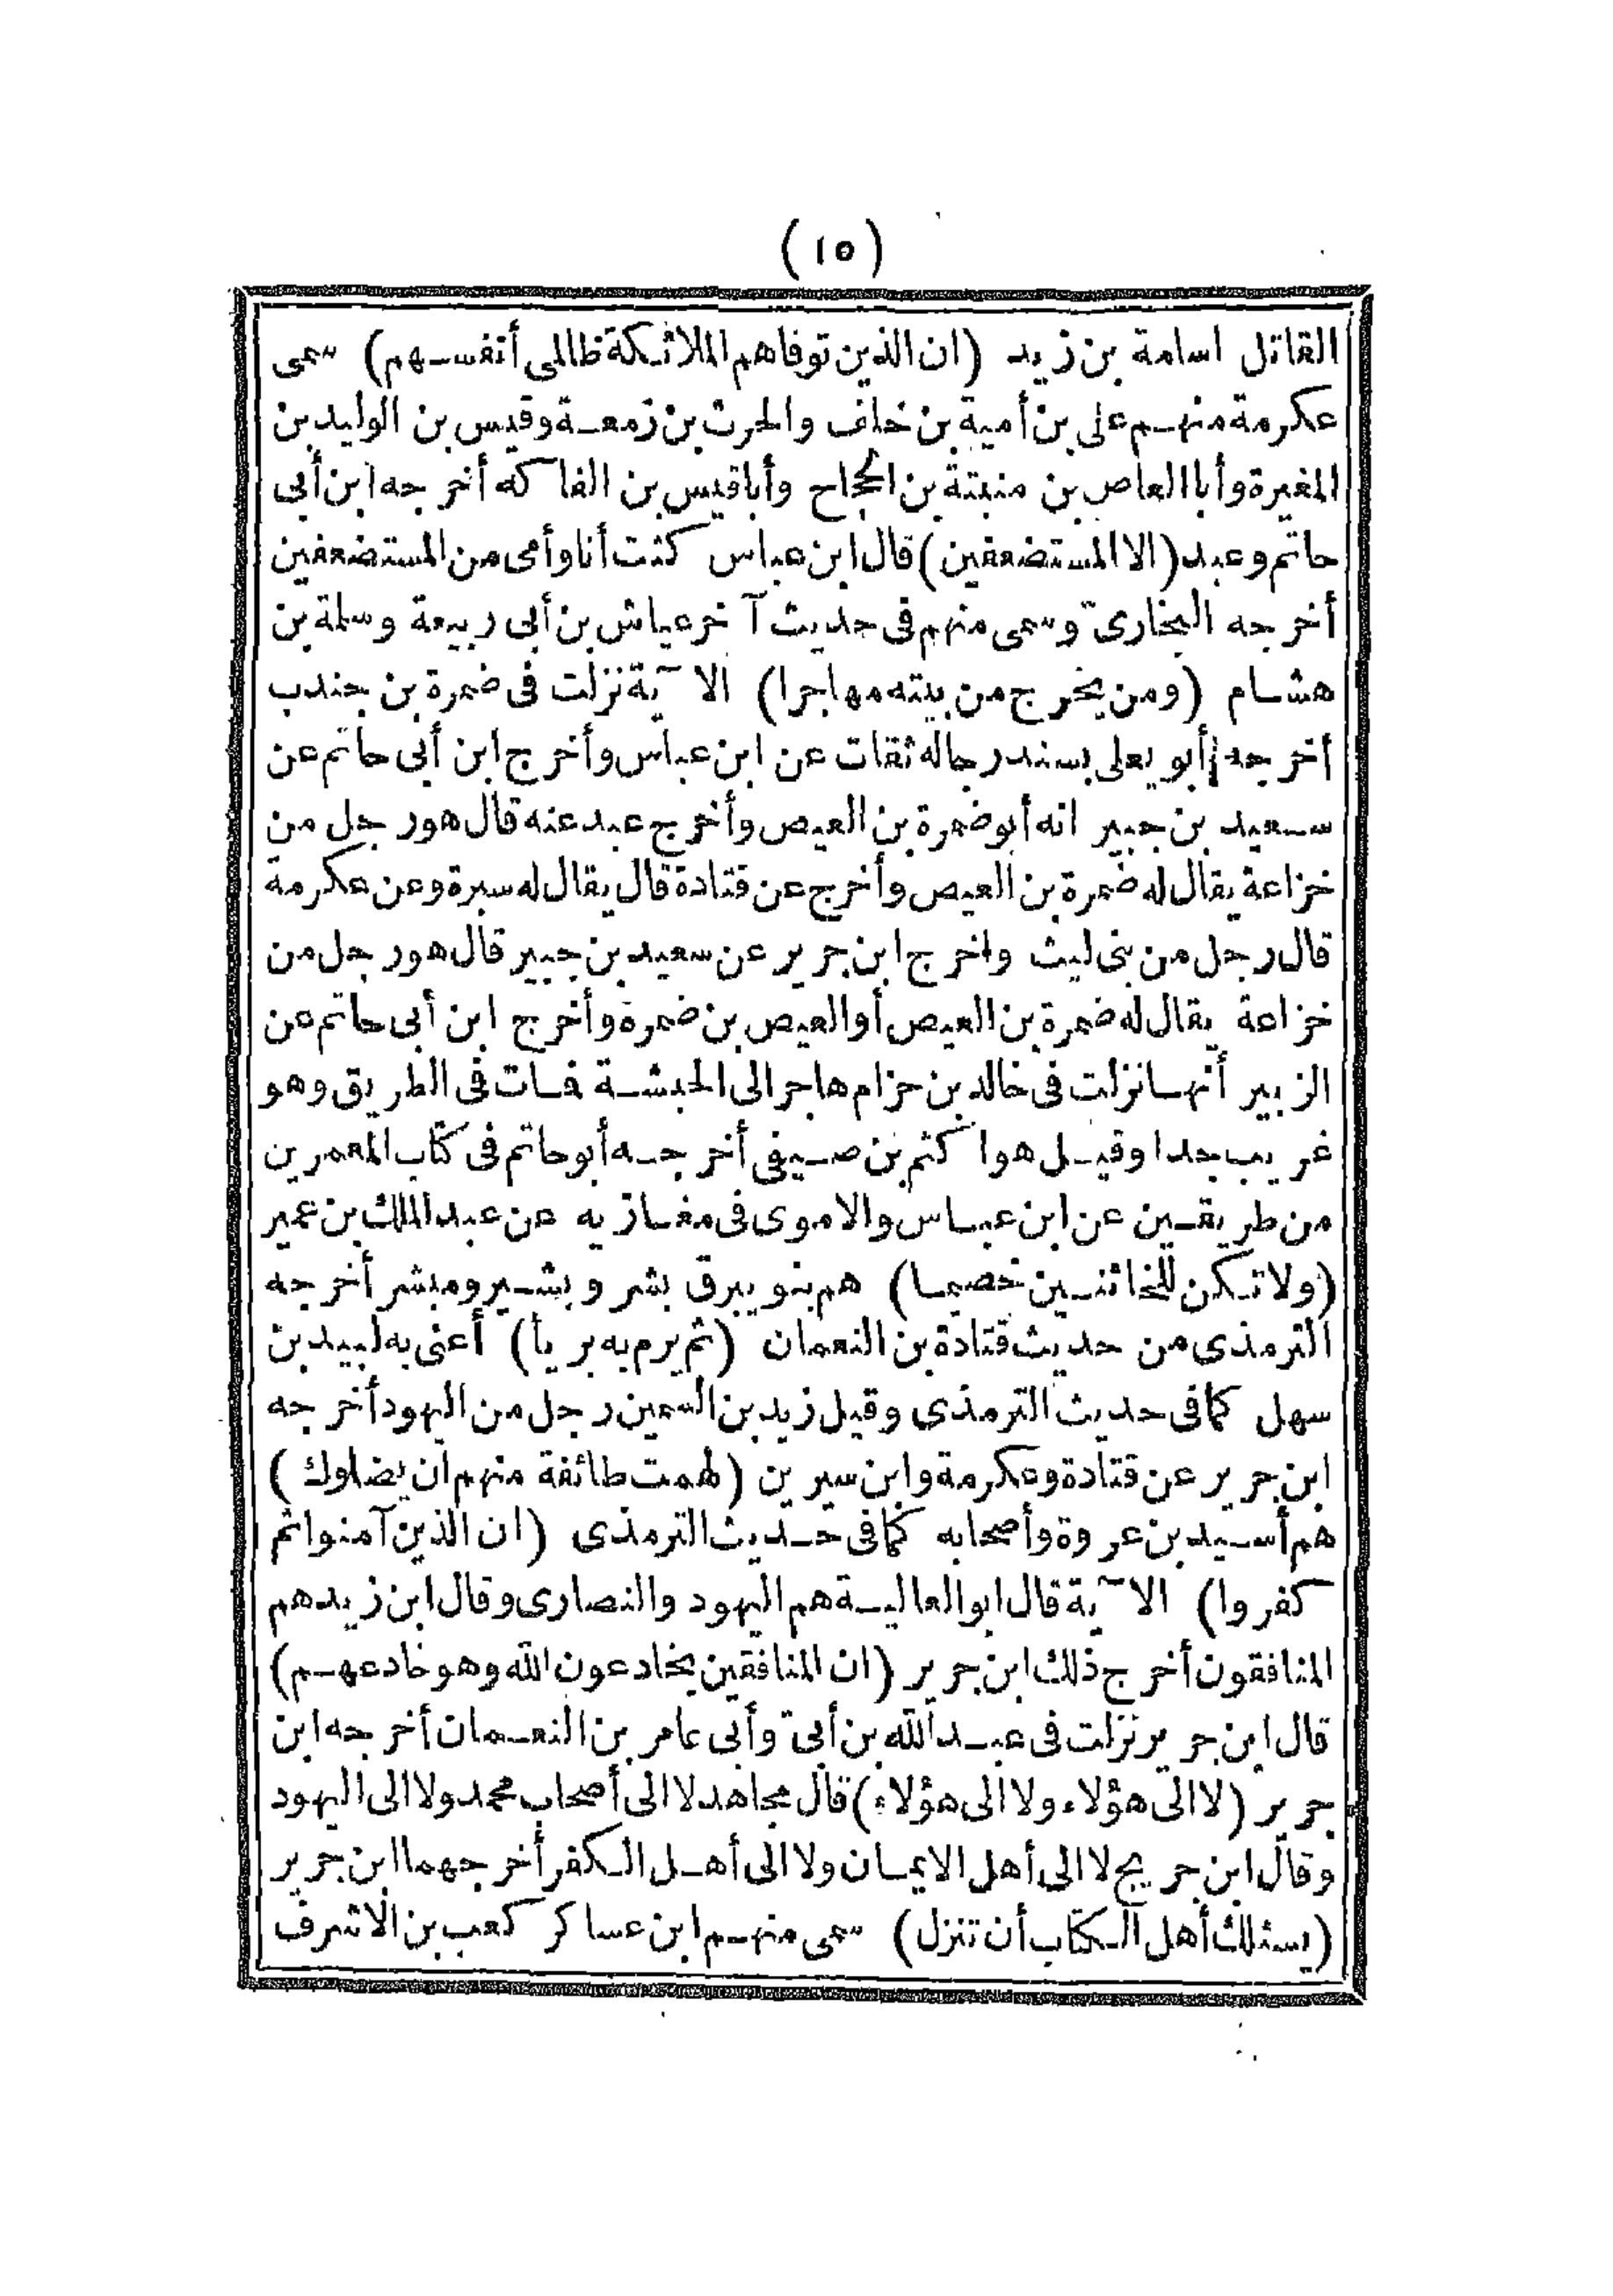 (١٥)
القاتل اسامة بن زيد (ان الذين توفاهم الملائكة ظالمى أنفسهم) سمى
عكرمة منهم على بن أمية بن خلف والحرث بن زمعة وقيس بن الوليد بن
المغيرة وأبا العاص بن منبتة بن الحجاج وأبا قيس بن الفاكه أخرجه ابن أبى
حاتم وعبد (الا المستضعفين) قال ابن عباس كنت أنا وأمى من المستضعفين
أخرجه البخارىّ وسمى منهم فى حديث آخر عياش بن أبى ربيعة وسلمة بن
هشام (ومن يخرج من بيته مهاجرا) الآية نزلت فى ضمرة بن جندب
أخرجه أبو يعلى بسند رجاله ثقات عن ابن عباس وأخرج ابن أبى حاتم عن
سعيد بن جبير انه أبو ضمرة بن العيص وأخرج عبد عنه قال هو رجل من
خزاعة يقال له ضمرة بن العيص وأخرج عن قتادة قال يقال له سبرة وعن عكرمة
قال رجل من بنى ليث واخرج ابن جرير عن سعيد بن جبير قال هو رجل من
خزاعة يقال له ضمرة بن العيص أو العيص بن ضمرة وأخرج ابن أبى حاتم عن
الزبير أنها نزلت فى خالد بن حزام هاجر الى الحبشة فمات فى الطريق وهو
غريب جدا وقيل هو اكثم بن صيفى أخرجه أبو حاتم فى كتاب المعمرين
من طريقين عن ابن عباس والاموى فى مغازيه عن عبد الملك بن عمير
(ولا تكن للخائنين خصيما) هم بنو يبرق بشر وبشير ومبشر أخرجه
الترمذى من حديث قتادة بن النعمان (ثم يرم به بريأ) أعنى به لبيد بن
سهل كما فى حديث الترمذى وقيل زيد بن السمين رجل من اليهود أخرجه
ابن جرير عن قتادة وعكرمة وابن سيرين (لهمت طائفة منهم أن يضلوك)
هم أسيد بن عروة وأصحابه كما فى حديث الترمذى (ان الذين آمنوا ثم
كفروا) الآية قال ابو العالية هم اليهود والنصارى وقال ابن زيد هم
المنافقون أخرج ذلك ابن جرير (ان المنافقين يخادعون الله وهو خادعهم)
قال ابن جرير نزلت فى عبد الله بن أبىّ وأبى عامر بن النعمان أخرجه ابن
جرير (لا الى هؤلاء ولا الى هؤلاء) قال مجاهد لا الى أصحاب محمد ولا الى اليهود
وقال ابن جريج لا الى أهل الايمان ولا الى أهل الكفر أخرجهما ابن جرير
(يسئلك أهل الكتاب أن تنزل) سمى منهم ابن عساكر كعب بن الاشرف